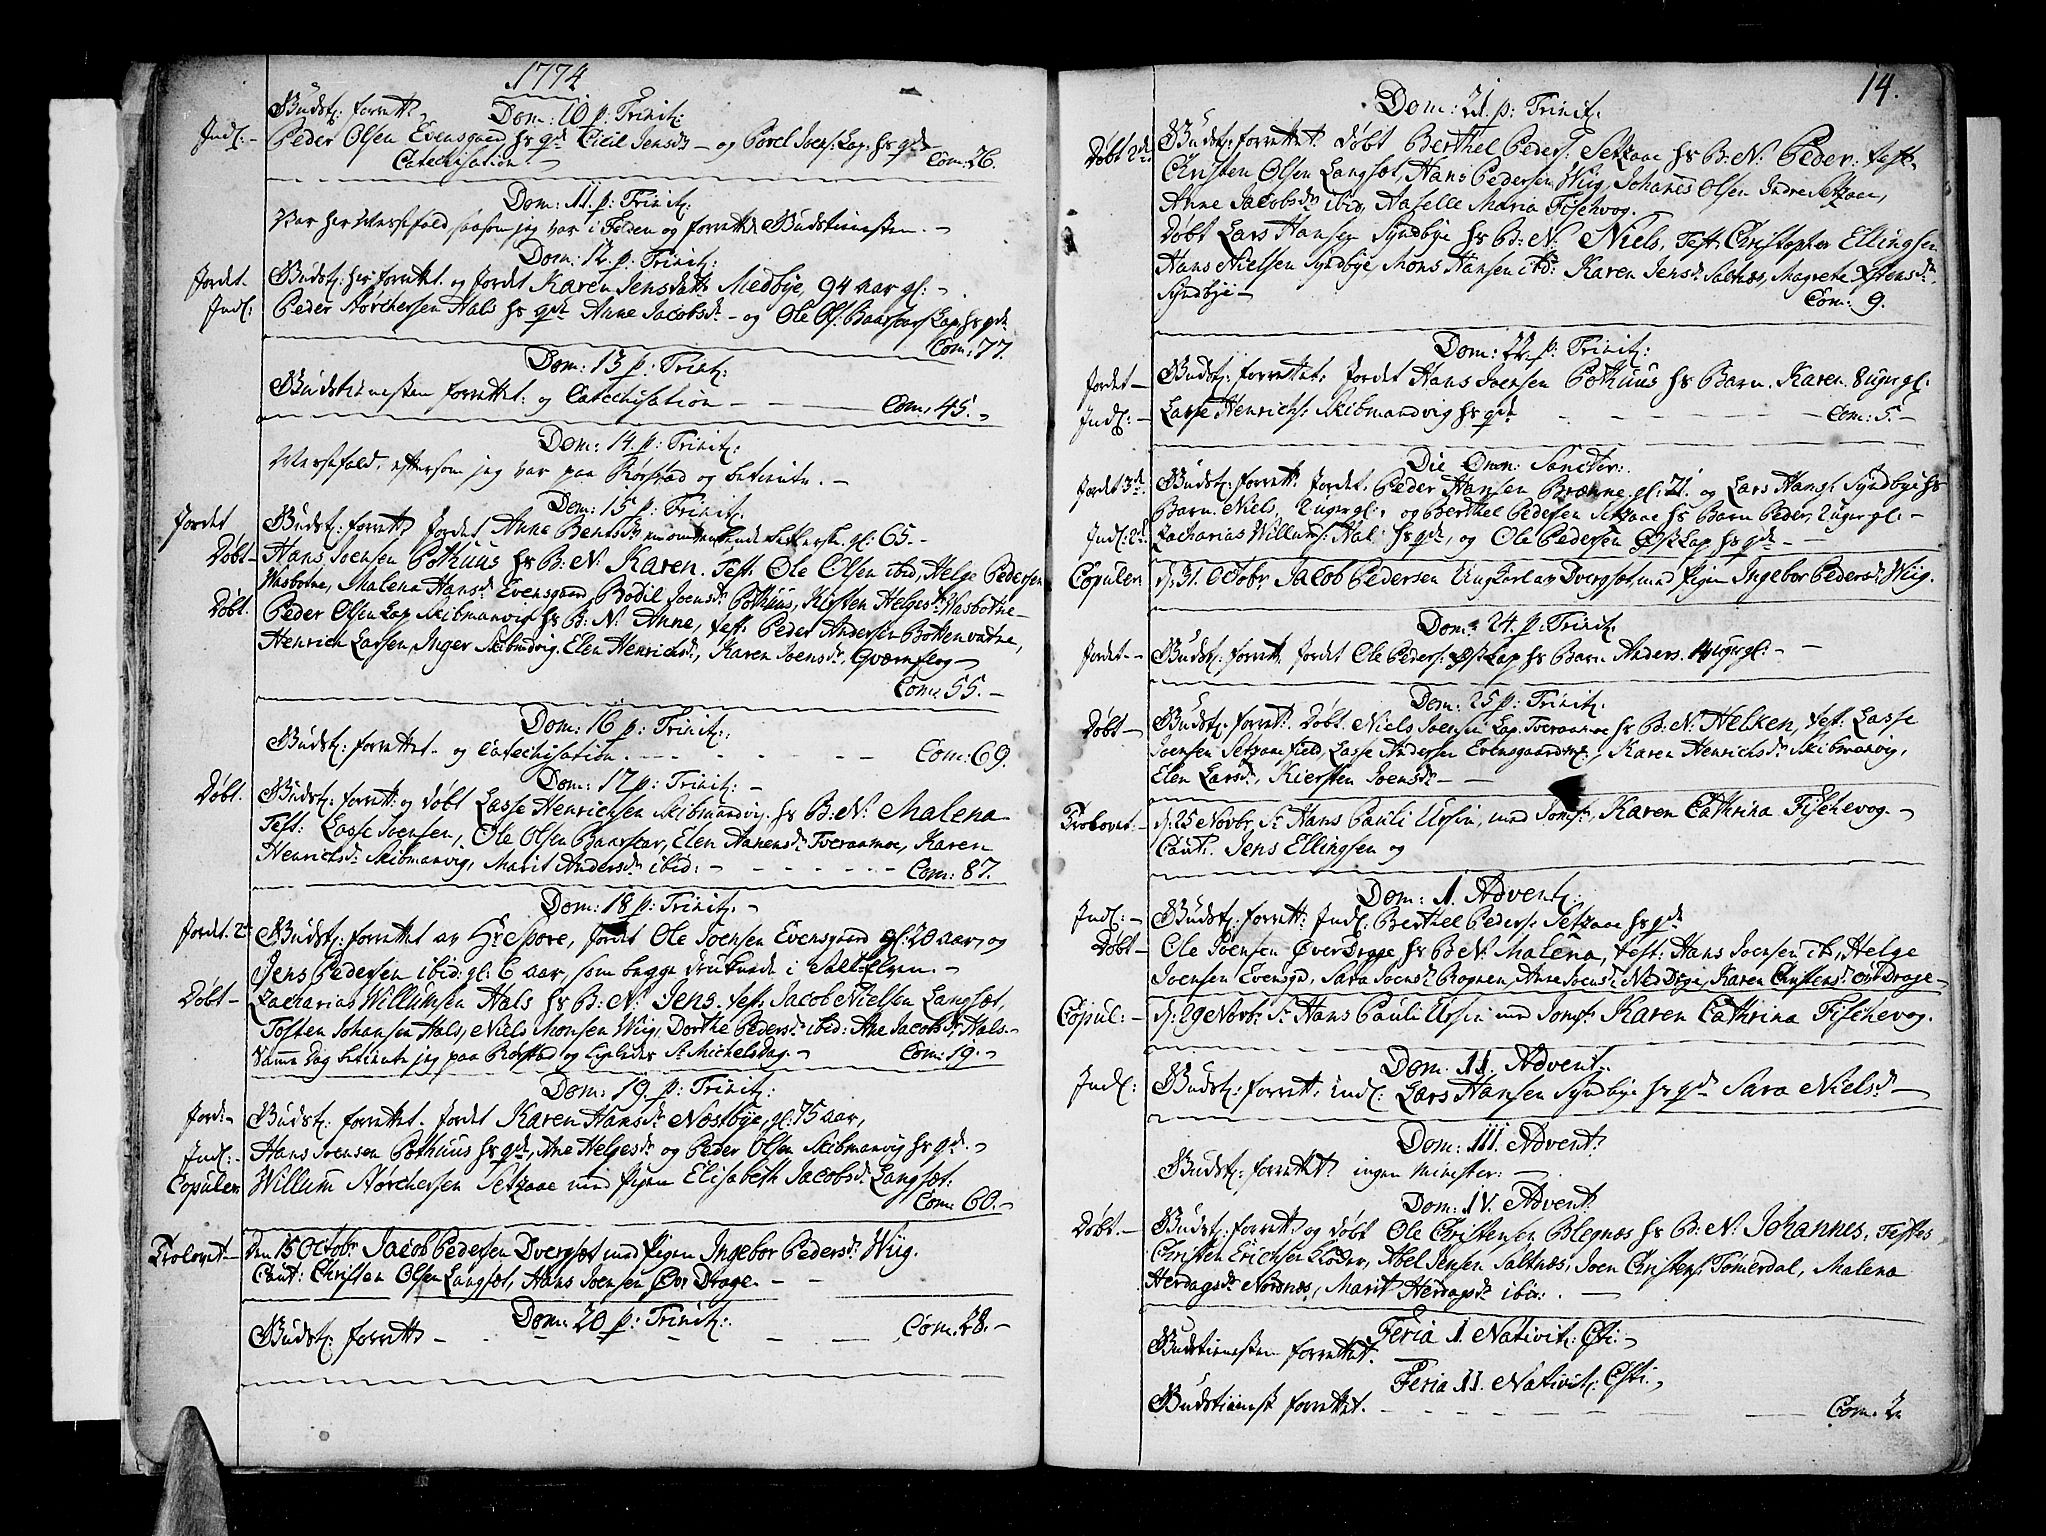 1774
Gudst: forrett.
Dom: 10 p: Trinit:
Indl: - Peder Olsen Evensgaard hs qde Cicil Jensd: - og Povel Joens: Lap. hs qde -
Catechisation - Com: 26.
Dom: 11. p: Trinit:
Var her Messefald saasom jeg var i Felden og forrett Gudstienesten. -
Dom: 12. p: Trinit:
Jordet. Gudst: her forrettet. og jordet Karen Jensdatt. Medbye, 94 aar gl: -
Indl: Peder Norchersen Hals hs qde Anne Jacobsd: - og Ole Ols: Lap hs qde
Com: 77.
Dom: 13 p: Trinit:
Gudstienesten forrettet: og Catechisation - Com: 45. -
Dom: 14. p: Trinit:
Messefald, eftersom jeg var paa Rorstad og betiente. -
Dom: 15 p: Trinit:
Jordet Gudst: forrett. jordet Anne Bentsd: gl: 65. -
Døbt - Hans Joensen Pothuus hs B: N: Karen. Test: Ole Olsen ibid, Helge Pedersen
Wasbotne, Malena Hansd: Evensgaard, Bodil Joensd: Pothuus, Kirsten Helgesd: Wasbotne -
Døbt. Peder Olsen Lap Skibmanvig hs B: N: Anne, test: Peder Andersen Bottenvatne,
Henrich Larsen, Inger Skibmvig, Elen Henrichsd:, Karen Joensd:, Qværnflog -
Com: 55. -
Dom: 16 p: Trinit:
Gudst: forrettet. og Catechisation. - Com: 69.
Dom: 17 p: Trinit: -
Døbt. Gudst: forrett: og døbt Lasse Henrichsen Skibmandvig. hs B: N: Malena
Test: Lasse Joensen, Ole Olsen, Elen Tveraamoe, Karen
Henrichsd: Skibmanvig, Marit Andersd: ibid: - Com: 87.
Dom: 18 p: Trinit: -
Jordet. 2de Gudst: forrettet av Hr Spore, jordet Ole Joensen Evensgaard gl: 20 aar, og
Jens Pedersen ibid: gl: 6 aar, som begge druknede i Salt Elven. -
Døbt - Zacharias Willumsen Hals hs B: N: Jens. test: Jacob Nielsen Langset,
Tosten Johansen Hals, Niels Monsen Wiig, Dorthe Pedersd: ibid: Ane Jacobsd: Hals. -
Samme Dag betiente jeg paa Rørstad og ligeledes St: Michelsdag. - Com: 19. -
Dom: 19 p: Trinit:
Jord: - Gudst: forrettet. jordet Karen Hansd: Næstbye, gl: 75 aar,
Indl: - Hans Joensen Pothuus hs qde, Ane Helgesd: og Peder Olsen Skibmanvig hs qde. -
Copuler. Willum Nørchersen Setzaae med Pigen Elisabeth Jacobsd: Langset:
Com: 60. -
Trolovet - Den 15 Octobr: Jacob Pedersen Dvergset med Pigen Ingebor Pedersd: Wiig.
Caut: Christen Olsen Langset, Hans Joensen Øvr Drage. -
Dom: 20 p: Trinit:
Gudst: forrett - Com: 28. -
14.
Dom: 21. p: Trinit:
Døbt 2de. Gudst: forrettet. døbt Berthel Peders: Setzaae hs B: N: Peder: test:
Christen Olsen Langset, Hans Pedersen Wiig, Johanes Olsen Indre Setzaae,
Anne Jacobsd: ibid, Maria Fischevog.
Døbt Lars Hansen Syndbye hs B: N: Niels, Test: Christopher Ellingsen
Hans Nielsen Syndbye, Mons Hansen ibd: Karen Jensd: Saltnæs, Magrete d:
Syndbye - Com: 9.
Dom: 22. p: Trinit:
Jordet - Gudst: forrettet: jordet Hans Joensen Pothuus hs Barn. Karen. 8 uger gl.
Indl: - Lasse Henrichs: Skibmandvig hs qde - Com: 5. -
Die Omn: Sanctor:
Jordet 3de. Gudst: forrett. jordet. Peder Hansen Brænne gl: 21. og Lars Hans: Syndbye hs
Barn. Niels, 2 uger gl:, og Berthel Pedersen Setzaae hs Barn Peder, 2 uger gl: -
Indl: 2de: Zacharias Willums: Hals hs qde, og Ole Pedersen Lap hs qde -
Copuler. d: 31. Octobr: Jacob Pedersen Ungkarl av Dvergset med Pigen Ingebor Pedersd: Wiig.
Dom: 24. p: Trinit:
Jordet - Gudst: forrett. jordet Ole Peders: Lap hs Barn Anders. 4 uger gl: -
Dom: 25 p: Trinit:
Døbt - Gudst: forrett: døbt. Niels Joensen Lap Tveraamoe hs B: N: Helken, test: Lasse
Joensen Setzaae field, Lasse Andersen, Karen Henrichsd: Skibmanvig,
Elen Larsd:, Kiersten Joensd: -
Trolovet - d: 25 Novbr: Sr: Hans Pauli Ursin, med Jomf:, Karen Cathrina Fischevog. -
Caut: Jens Ellingsen og
Dom: I. Advent:
Indl: - Gudst: forrett: Indl: Berthel Peders: Setzaae hs qde
Døbt - Ole Joensen Øver Drage hs B: N: Malena, test: Hans Joensen ib: Helge
Joensen Evensgd, Sara Joensd: Rognen, Anne Joensd: Ned Drge, Karen Christensd: Øvr Drage -
Copul: - d: 29 Novbr: Sr: Hans Pauli Ursin med Jomf: Karen Cathrina Fischevog.
Dom. II. Advent:
Indl: Gudst: forrett, indl: Lars Hansen Syndbye hs qde Sara Nielsd: -
Dom: III. Advent:
Gudst: forrettet ingen Minister: -
Dom: IV. Advent:
Døbt. - Gudst: forrett og døbt Ole Christensen Blegnæs hs B: N: Johannes, Testes
Christen Erichsen, Abel Jensen Saltnæs, Joen Christens: Tømerdal, Malena
Herdagsd: Nordnes, Marit Herdagsd: ibid: -
Feria I. Nativit: Csti: -
Gudstienesten forrettet.
Feria II. Nativit: Csti: -
Gudstienest forrettet. - Com. 2.